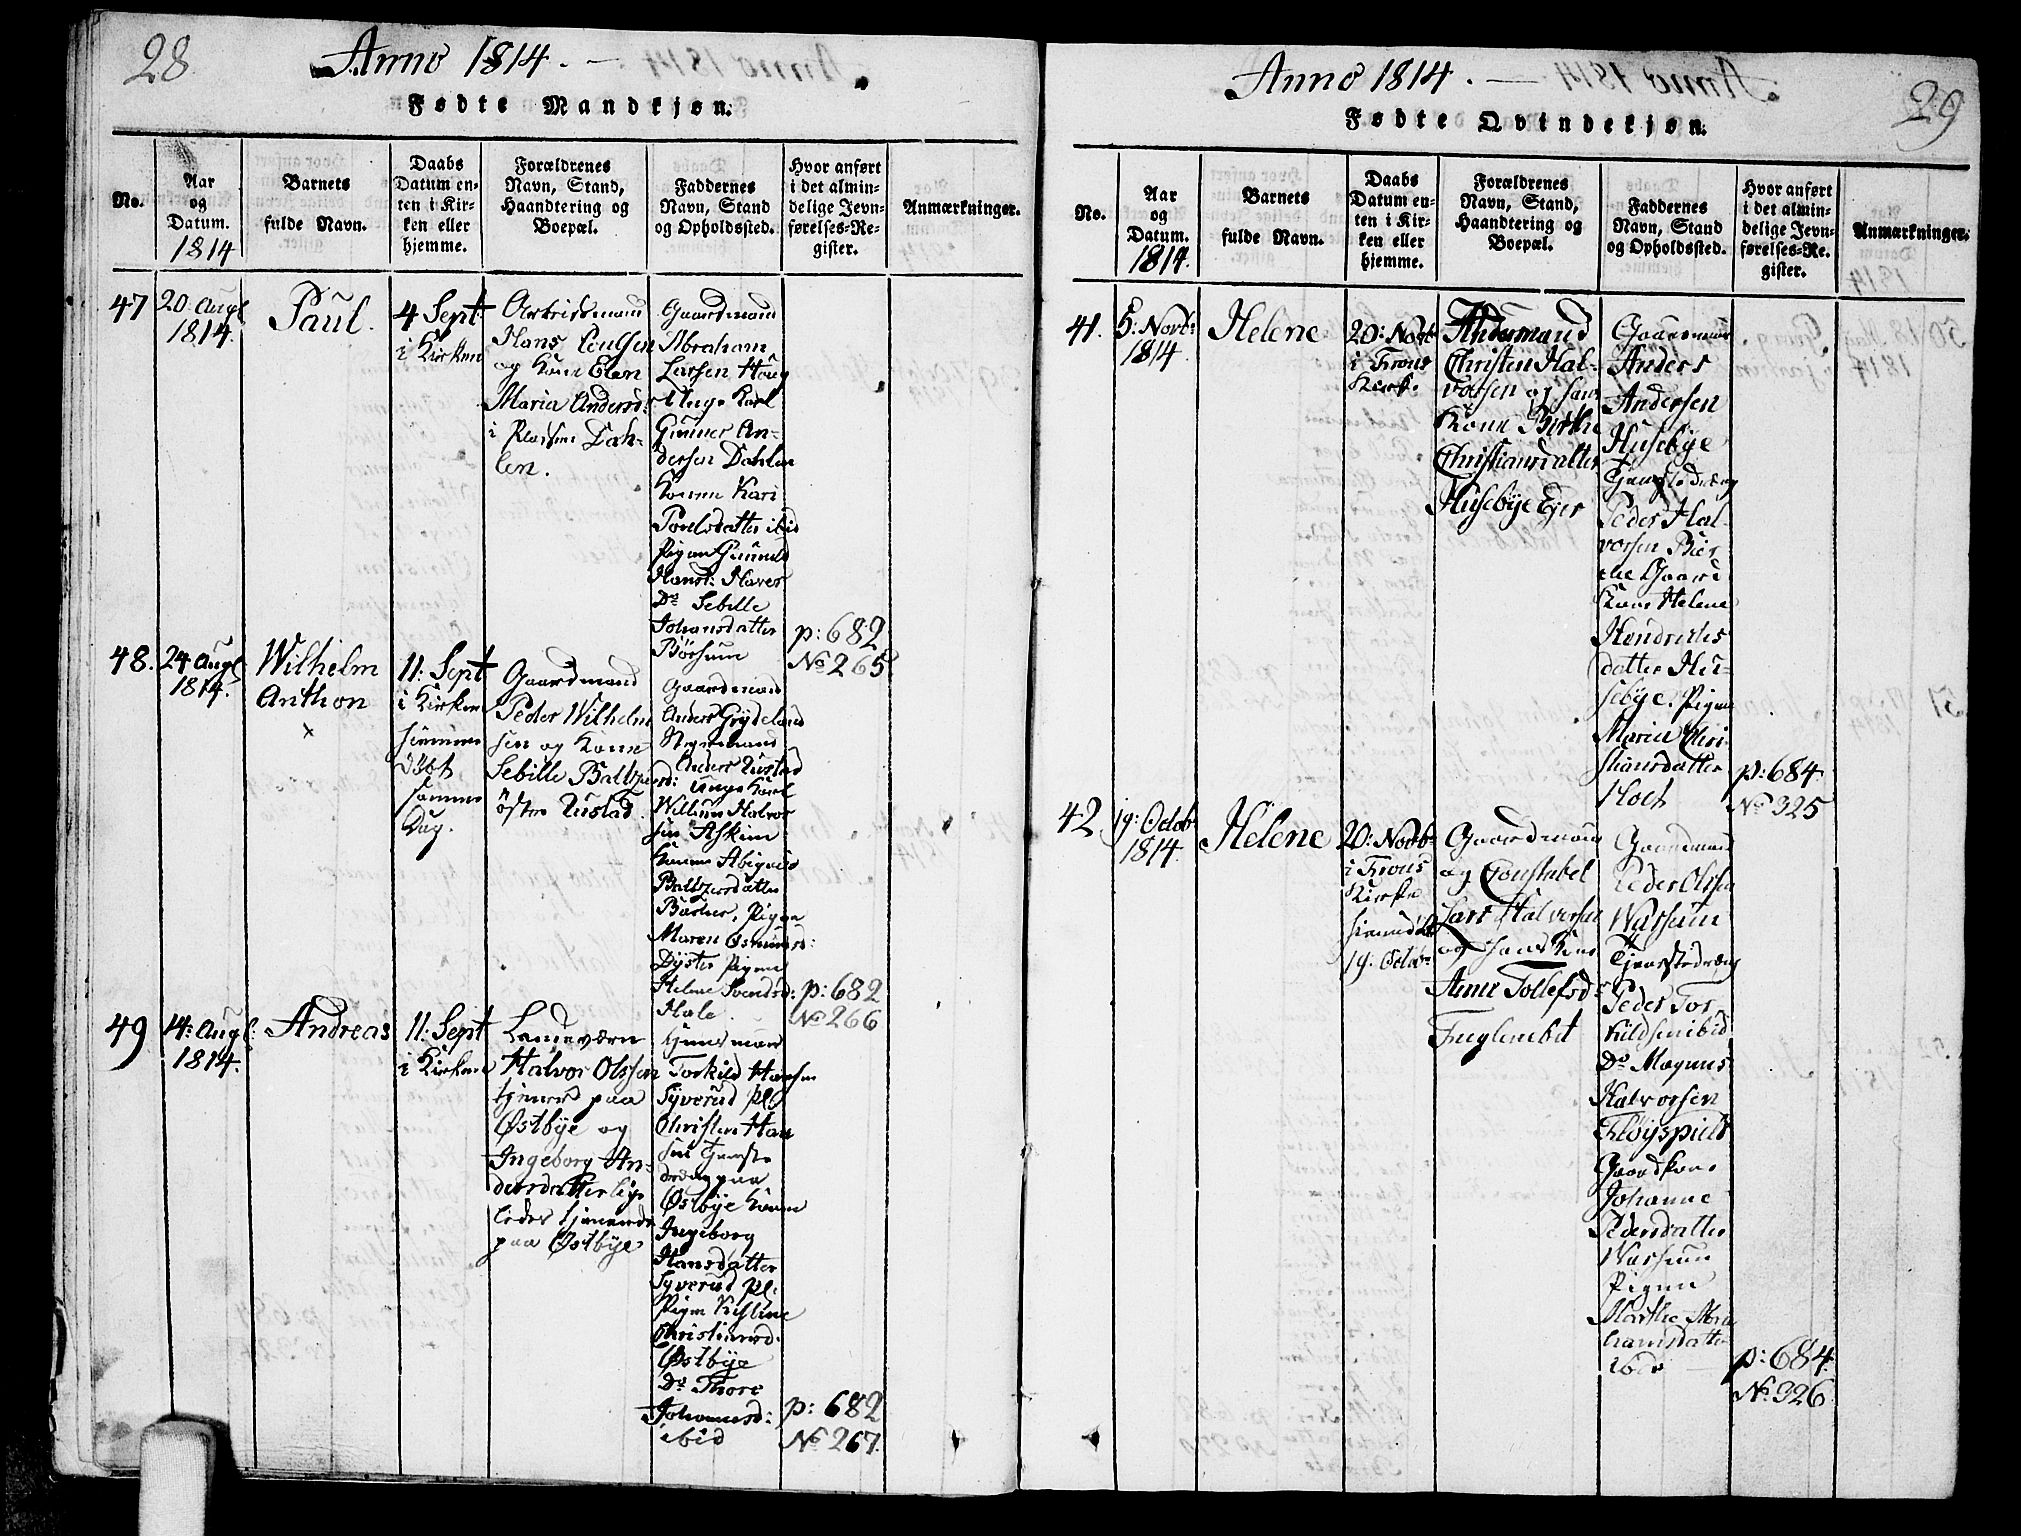 28
Anno 1814. —
Fødte Mandkjøn.
No.
Aar
og
Datum.
1814
Barnets
fulde Navn.
Daabs
Datum en-
ten i Kir-
ken eller
hjemme.
Forældrenes
Navn, Stand,
Haandtering og
Boepæl.
Faddernes
Navn, Stand
og Opholdssted.
Hvor anført
i det almin-
delige Jevn-
førelses-Re-
gister.
Anmærkninger.
47
20 Augl
1814.
Paul.
4 Sept
i Kirken
Hans
og Kone Elen
Maria Andersd:
i Pladsen Dah-
len.
Gaardmand
Abraham
Larsen Houg
Unge Karl
Gunner An-
dersen Dahlen
Konen Kari
Poulsdatter ibid
Pigen Gunild
Hansd: Haver
Do Sebille
Johansdatter
Børsum
p: 682
No 265
48.
24 Augl
1814.
Wilhelm
Anthon
11: Sept
i Kirken
hjemme
døbt
samme
Dag.
Gaardmand
Peder Wilhelm
sen og Kone
Sebille Baltzers
Rustad
Gaardmand
Anders Grydeland
Anders Rustad
Unge Karl
Willum Halvor
sen Askim
Konen Abigael
Baltzersdatter
Pigen
Maren Osmunds:
Dyster Pigen
Helene Svendsd:
Hole.
p: 682
No 266
49
14: Augl:
1814.
Andreas
11: Sept
i Kirken
Landeværn
Halvor Olssen
tjenende paa
Østbye og
Ingeborg An-
dersdatter lige
ledes tjenende
paa Østbye
Huusmand
Torkild Hansen
Syverud Pl:
Christen Han
sen Tjeneste
dreng paa
Østbye Konen
Ingeborg
Hansdatter
Syverud Pl:
Pigen Kistine
Christiansd:
Østbye
Do Thore
Johannesd:
ibid
p: 682
No 267.
29
Anno 1814. —
Fødte Qvindekjøn.
No.
Aar
og
Datum.
1814.
Barnets
fulde Navn.
Daabs
Datum en-
ten i Kir-
ken eller
hjemme.
Forældrenes
Navn, Stand,
Haandtering og
Boepæl.
Faddernes
Navn, Stand
og Opholdssted.
Hvor anført
i det almin-
delige Jevn-
førelses-Re-
gister.
Anmærkninger.
41.
5: Novb:
1814.
Helene
20: Novb:
i Frons
Kirke
Christen Hal-
vorsen og hans
Kone Birthe
Christiansdatter
Husebye Eger
Gaardmand
Anders
Andersen
Husebye
Tjenestedreng
Peder Hal-
vorsen Bier
che Gaard
Kone Helene
Hendrichs
datter Hu-
sebye. Pigen
Maria Chri-
stiansdatter
Holt
p: 684
No 325
42.
19: Octob:
1814.
Helene
20: Novb:
i Frons
Kirke
hjemmedøbt
19: Octob:
Gaardmand
og Constabel
Lars Halvorsen
og hans Kone
Anne Tollefsd:
Fuglenebet
Gaardmand
Peder Olssen
Warsum
Tjenestedreng
Peder Tor
kildsen ibid
Do Magnus
Halvorsen
Fløyspield
Gaardkone
Johanne
Pedersdatter
Warsum
Pigen
Marthe Abra
hamsdatter
ibid
p: 684.
No 326